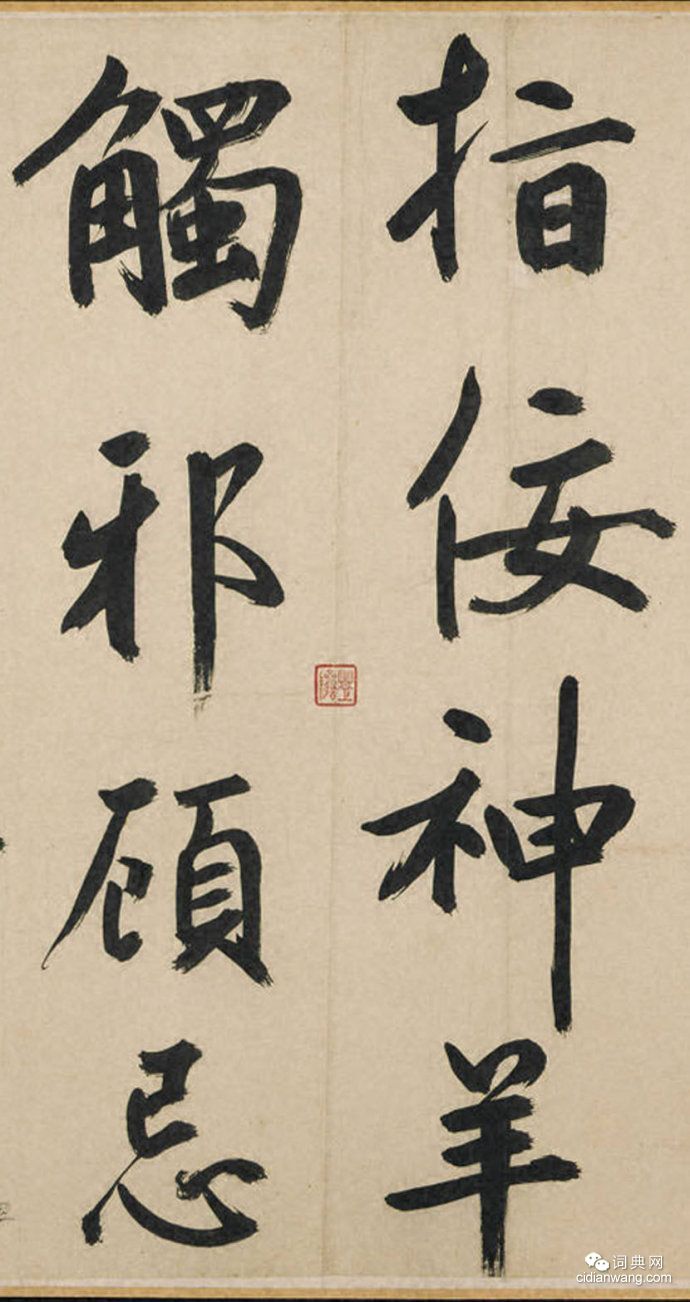 指佞神羊
觸邪顧忌
词典网
cidianwang.com